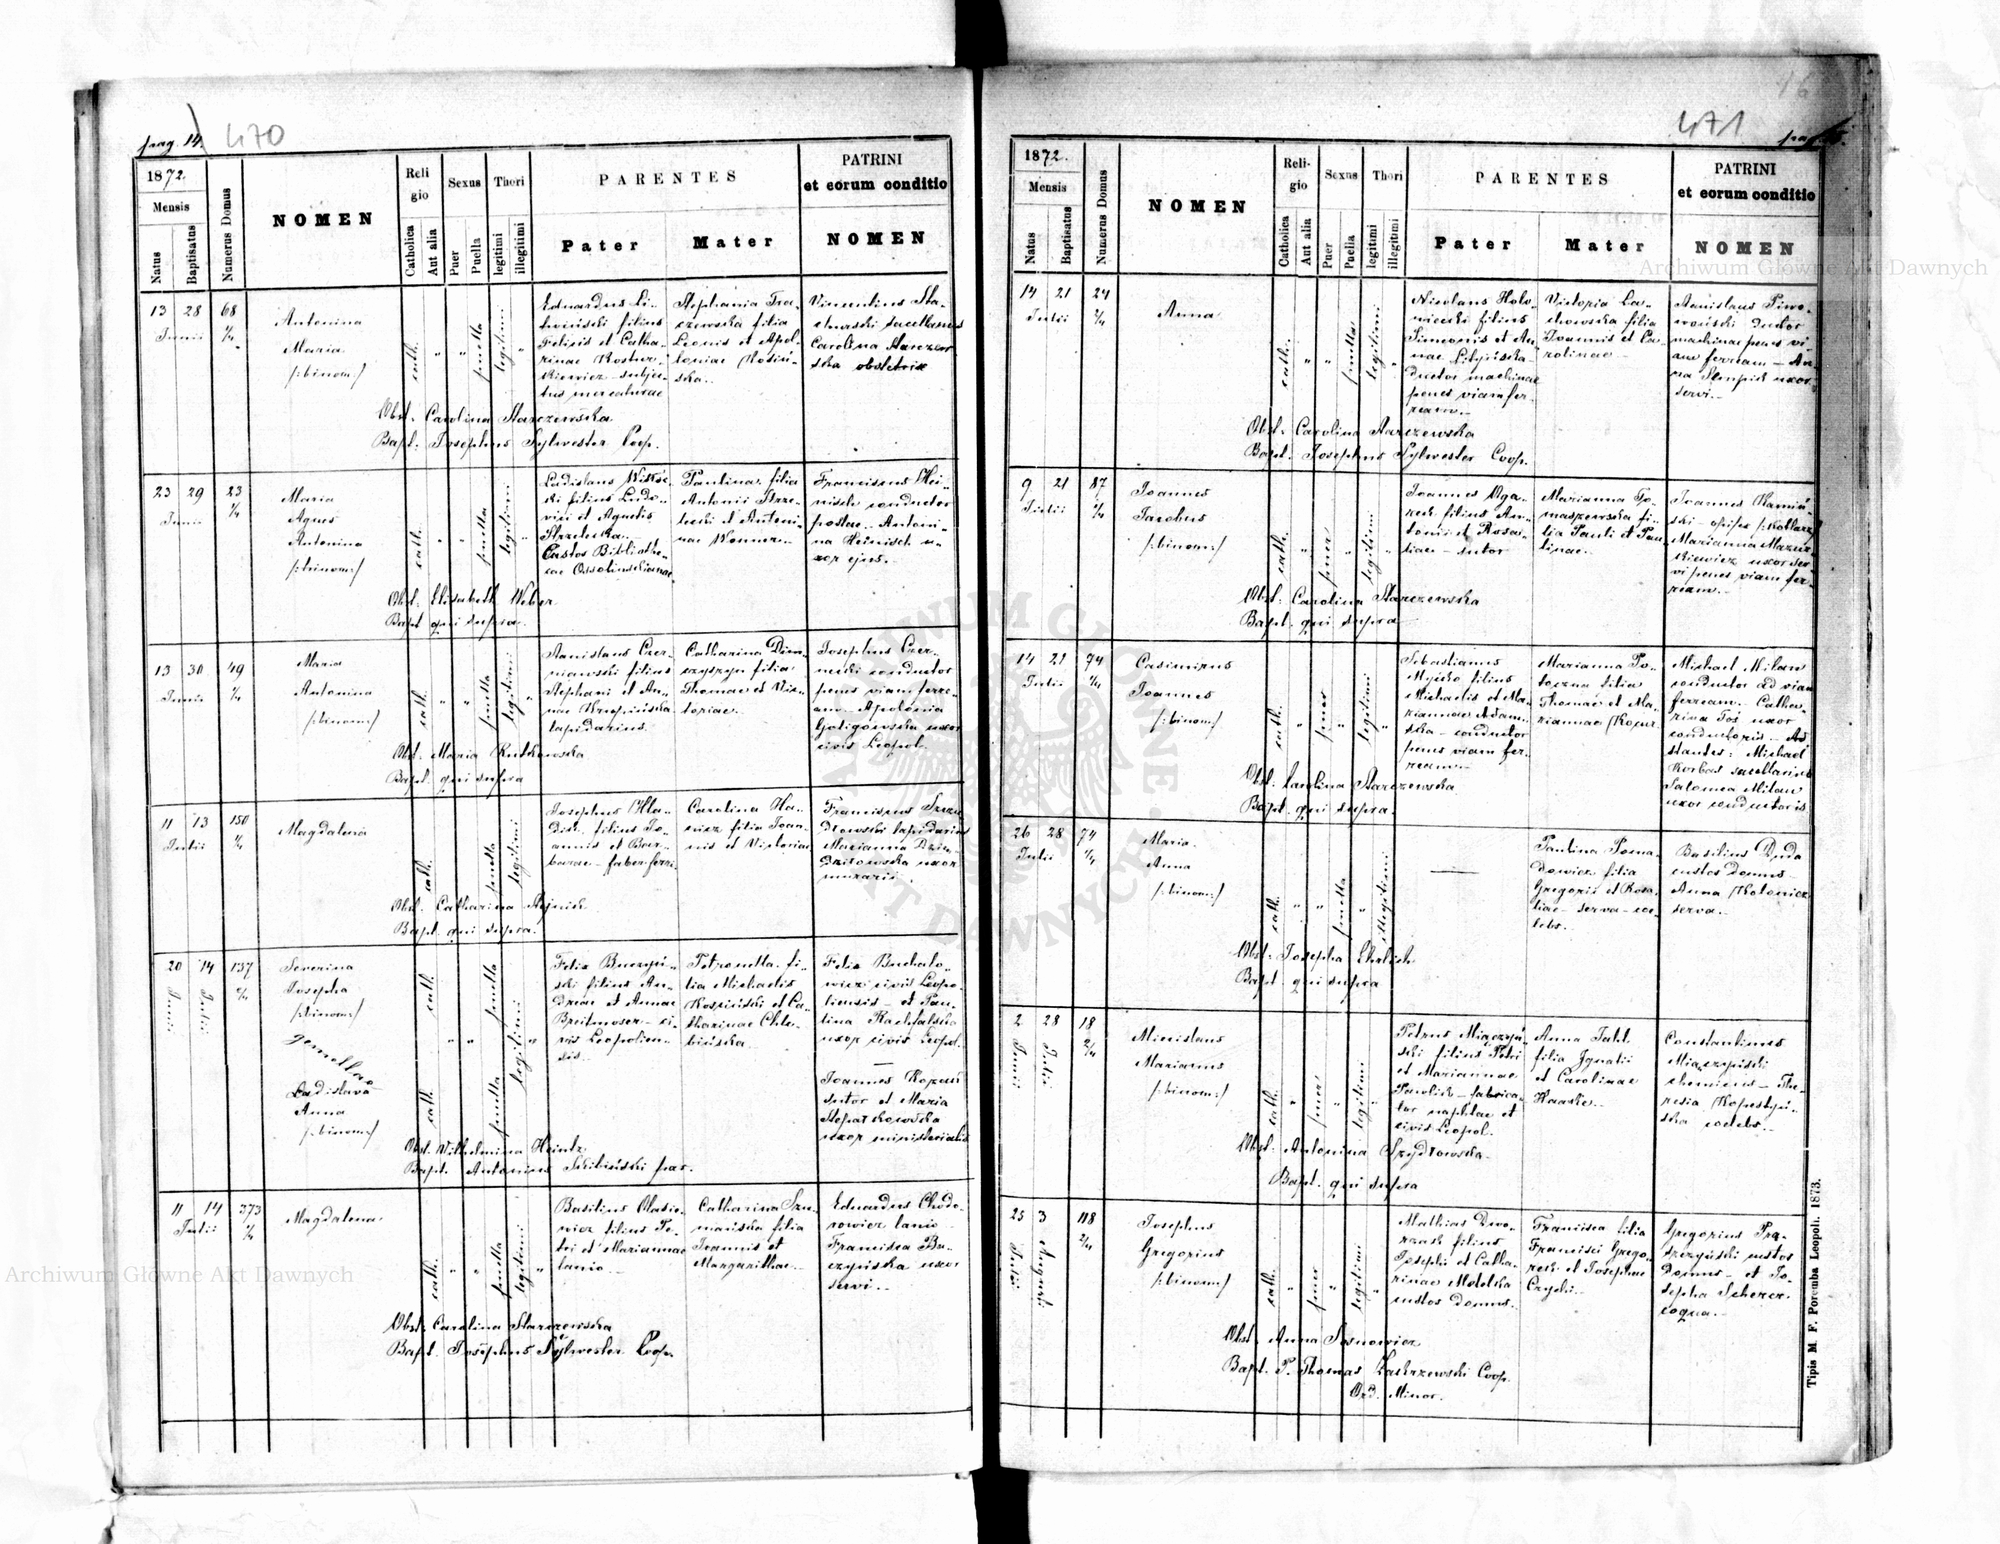 pag. 14.
470
1872.
Mensis
Natus
Baptisatus
Numerus Domus
NOMEN
Religio
Catholica
Aut alia
Sexus
Puer
Puella
Thori
legitimi
illegitimi
PARENTES
Pater
Mater
PATRINI
et eorum conditio
NOMEN
13 28 68
Junii
Antonina
Maria
/:binom:/
cath.
"
"
puella
legitimi
Eduardus
filius
Felicis et Catha-
rinae
mercaturae
Stephania
filia
Leonis et Apol-
loniae
Vincentius
Carolina Starczew-
ska obstetrix
Obst. Carolina Starczewska
Bapt. Josephus Sylwester Coop.
23 29 23
Junii
Maria
Agnes
Antonina
/:binom:/
cath.
"
"
puella
legitimi
"
Ladislaus
filius Ludo-
vici et Agnetis
Strzelecka
Custos Bibliothe-
cae Ossolinscianae
Paulina filia
Antonii Strze-
lecki et Antoni-
nae Wenner
Franciscus Hei-
nisch conductor
postae. Antoni-
na Heinisch u-
xor ejus.
Obst. Elisabeth Weber
Bapt qui supra.
13 30 49
Junii
Maria
Antonina
/:binom:/
cath.
"
"
puella
legitimi
"
Stanislaus Czer-
niawski filius
Stephani et An-
nae Krupińska
lapidarius.
Catharina Dem-
czyszyn filia
Thomae et Vic-
toriae.
Josephus Czer-
necki conductor
penes viam ferre-
am. Apolonia
Goligowska uxor
civis Leopol.
Obst. Maria Rutkowska
Bapt. qui supra
11 13 150
Julii
Magdalena
cath.
puella
legitimi
Josephus Hla-
filius Jo-
annis et Bar-
barae faber ferri.
Carolina
filia Joan-
nis et Victoriae
Franciscus
lapidarius
Marianna
uxor
murarii.
Obst. Catharina
Bapt. qui supra.
20 14 137
Junii Julii
Severina
Josepha
/:binom:/
gemellae
Ladislava
Anna
/:binom:/
cath.
puella
legitimi
cath.
puella
Felix Buczyń-
ski filius An-
dreae et Annae
Breitmoser ci-
vis Leopolien-
sis.
Petronella fi-
lia Michaelis
Kosiński et Ca-
tharinae Chle-
bińska
Felix Buchalo-
wicz civis Leopo-
liensis et Pau-
lina Rachfalska
uxor civis Leopol.
Joannes
sutor et Maria
uxor ministerialis
Obst. Wilhelmina Heintz
Bapt. Antonius Skibiński par.
11 14 373
Julii
Magdalena
cath.
"
"
puella
legitimi
"
Basilius
filius Pe-
tri et Mariannae
lanio
Catharina Szu-
mańska filia
Joannis et
Margarithae.
Eduardus Chodo-
rowicz lanio
Francisca Bu-
czyńska uxor
servi.
Obst. Carolina Starczewska
Bapt. Josephus Sylwester Coop.
471
pag. 15.
1872.
Mensis
Natus
Baptisatus
Numerus Domus
NOMEN
Religio
Catholica
Aut alia
Sexus
Puer
Puella
Thori
legitimi
illegitimi
PARENTES
Pater
Mater
PATRINI
et eorum conditio
NOMEN
14 21 24
Julii
Anna
cath.
"
"
puella
legitimi
"
Nicolaus Holo-
wiecki filius
Simeonis et An-
nae
ductor machinae
penes viam fer-
ream.
Victoria
filia
Joannis et Ca-
rolinae
Stanislaus Piwo-
woński ductor
machinae penes vi-
am ferream An-
na uxor
servi.
Obst. Carolina Starczewska
Bapt. Josephus Sylwester Coop.
9 21 87
Julii
Joannes
Jacobus
/:binom:/
cath.
"
puer
"
legitimi
"
Joannes Oga-
rek filius An-
tonii et Rosa-
liae sutor
Marianna To-
maszewska fi-
lia Pauli et Pau-
linae.
Joannes Kamiń-
ski opifex
Marianna Mazur-
kiewicz uxor ser-
vi penes viam fer-
ream.
Obst. Carolina Starczewska
Bapt. qui supra
14 21 74
Julii
Casimirus
Joannes
/:binom:/
cath.
"
puer
"
legitimi
"
Sebastianus
Myćko filius
Michaelis et Ma-
riannae Adam-
ska conductor
penes viam fer-
ream
Marianna Po-
toczna filia
Thomae et Ma-
riannae
Michael Milan
conductor ad viam
ferream. Catha-
rina Toś uxor
conductoris. Ad
stantes: Michael
Korbas sacellanus
Salomea Milan
uxor conductoris
Obst. Carolina Starczewska
Bapt. qui supra.
26 28 74
Julii
Maria
Anna
/:binom:/
cath.
"
"
puella
"
illegitimi
Paulina Poma-
dowicz filia
Gregorii et Rosa-
liae serva coe-
lebs.
Basilius Duda
custos domus
Anna
serva.
Obst. Josepha Ehrlich
Bapt. qui supra
2 28 18
Junii Julii
Mieczislaus
Marianus
/:binom:/
cath.
"
puer
"
legitimi
"
Petrus Miączyń-
ski filius Petri
et Mariannae
Pawlik fabrica-
tor naphtae et
civis Leopol.
Anna Jahl
filia Ignatii
et Carolinae
Haaske
Constantinus
Miączyński
chemicus The-
resia Kopestyń-
ska coelebs.
Obst. Antonina Szydłowska
Bapt. qui supra
25 3 118
Julii Augusti
Josephus
Gregorius
/:binom:/
cath.
"
puer
"
legitimi
"
Mathias Dwo-
rzak filius
Josephi et Catha-
rinae
custos domus.
Francisca filia
Francisci Grego-
reski et Josephae
Czychi
Gregorius Pra-
szczyński custos
domus et Jo-
sepha Scherer
coqua.
Obst. Anna Sosnowicz
Bapt. P. Thomas Zakrzewski Coop.
Ord. Minor.
Tipis M. F. Poremba Leopoli. 1873.
Archiwum Główne Akt Dawnych
Archiwum Główne Akt Dawnych
ARCHIWUM GŁÓWNE AKT DAWNYCH